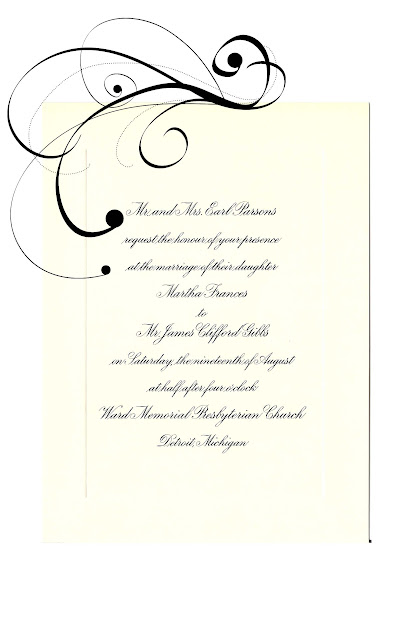 Mr. and Mrs. Earl Parsons
request the honour of your presence
at the marriage of their daughter
Martha Frances
to
Mr. James Clifford Gibbs
on Saturday, the nineteenth of August
at half after four o'clock
Ward Memorial Presbyterian Church
Detroit, Michigan